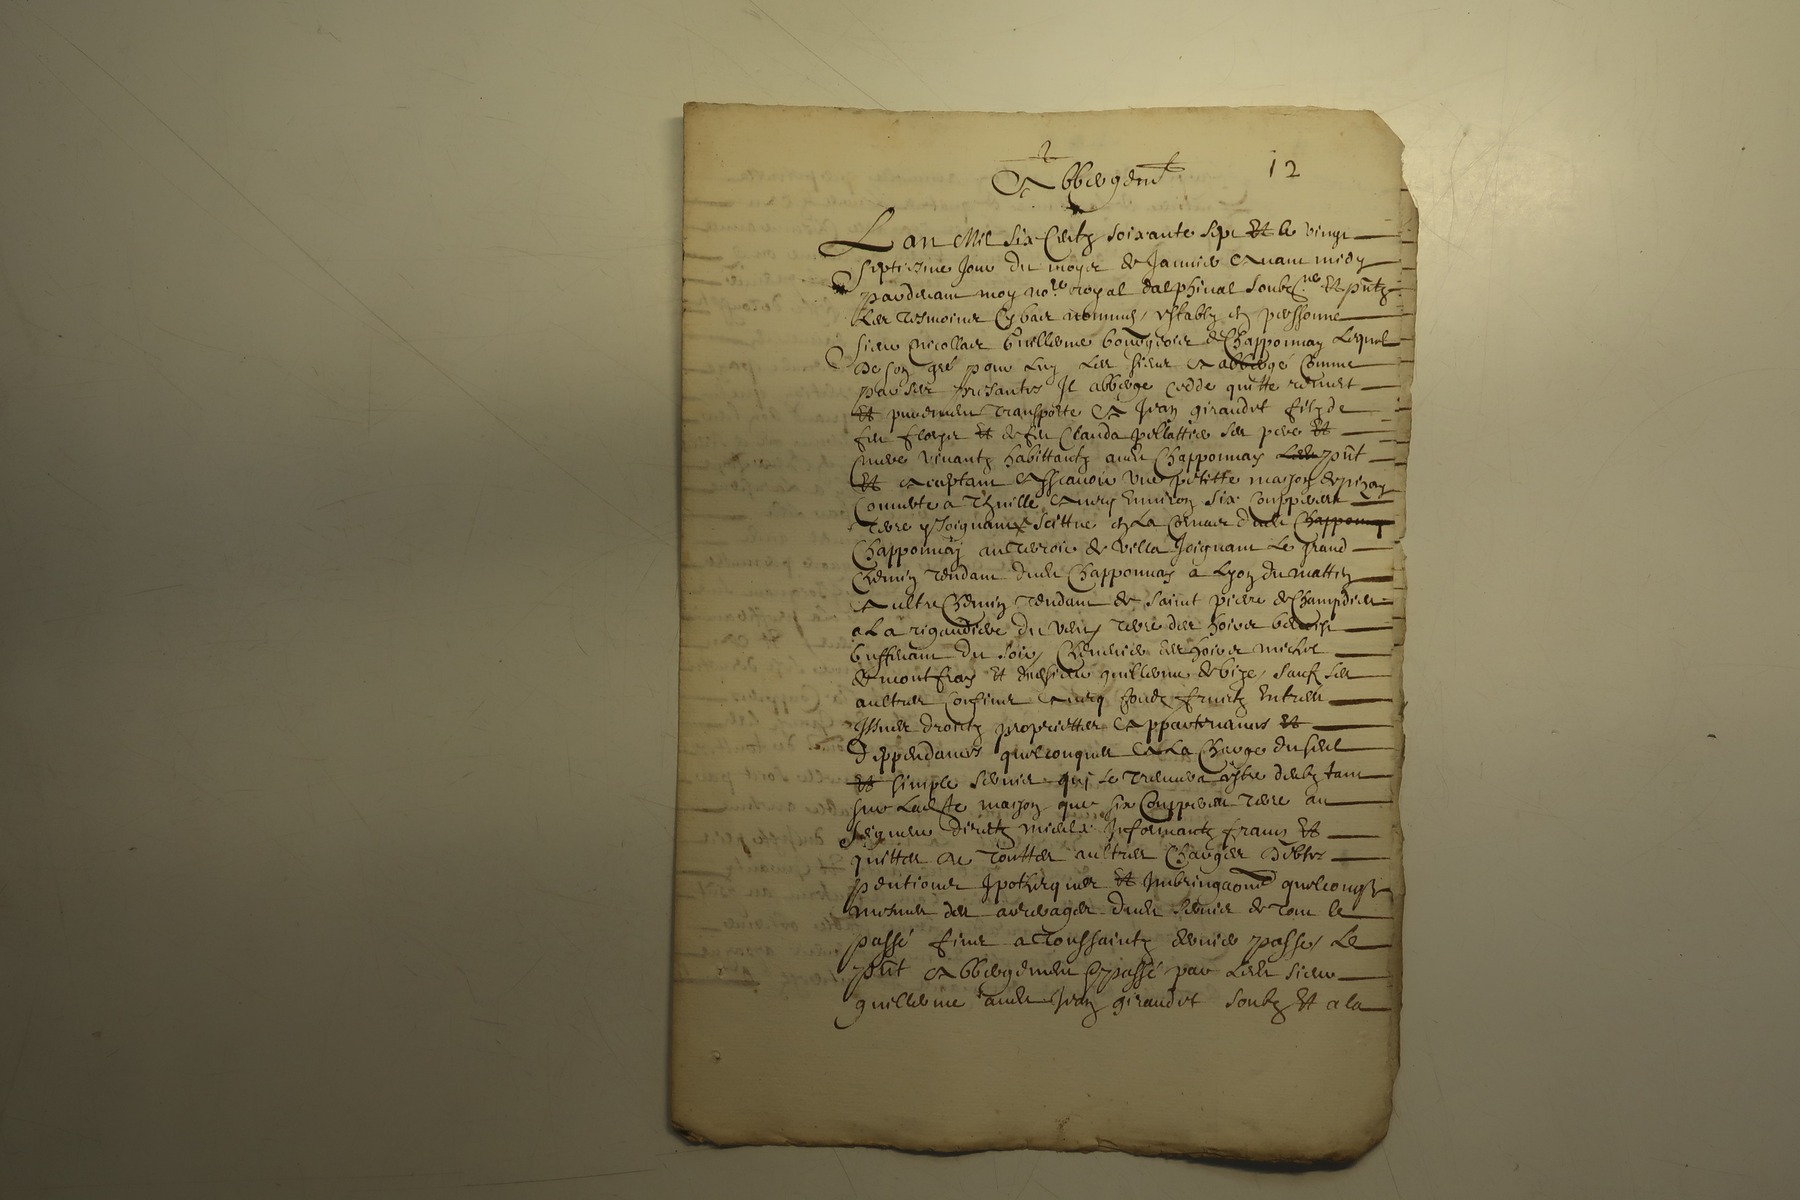 2
Abbergemt
12
Lan Mil six Centz soixante sept Et le vingt
septiesme Jour du moys de Janvier Avant midy
pardevant moy nore royal dalphinal soubzne Et pntz
Les tesmoins Cy bas nommes, estably en personne
sieur Nicollas Guillerme bourgeois de Chapponnay Lequel
De son gré pour luy Les siens A abbergé Comme
par ses presantes Il abberge cedde quitte remet
Et purement transporte A Jean giraudet filz de
feu Et de feu Clauda ses pere Et
mere vivantz habittantz audit Chapponnay pnt
Et acceptant Assavoir une petitte maison de pizay
Couverte a Thuille Avecq Environ six Couppees
terre y Joignant scittue en La Commune dudit
Chapponnay au terroir de villa Joignant Le grand
Chemin tendant dudit Chapponnay a Lyon du mattin
Aultre Chemin tendant de saint pierre de Chandieu
a La rigaudiere du vent, terre des hoirs
du soir, des hoirs michel
de montfray Et dudit sieur guillerme de bize, sauf ses
aultres Confins Avecq fondz fruictz Entrees
Issues droictz proprietter Appartenances Et
deppendances quelconques A La Charge du seul
Et simple servis qui se treuvera estre deubz tant
sur Ladite maison que six Couppees terre au
seigneur directz mieulx Informantz francz Et
quitte de touttes aultres Charges debtes
pentions Ipothecques Et quelconques
mesmes des arrerages dudit servis de tout le
passé fins a toussaintz dernier passe, Le
pnt Abbergement passé par Ledit sieur
guillerme audit Jean giraudet soubz Et a la